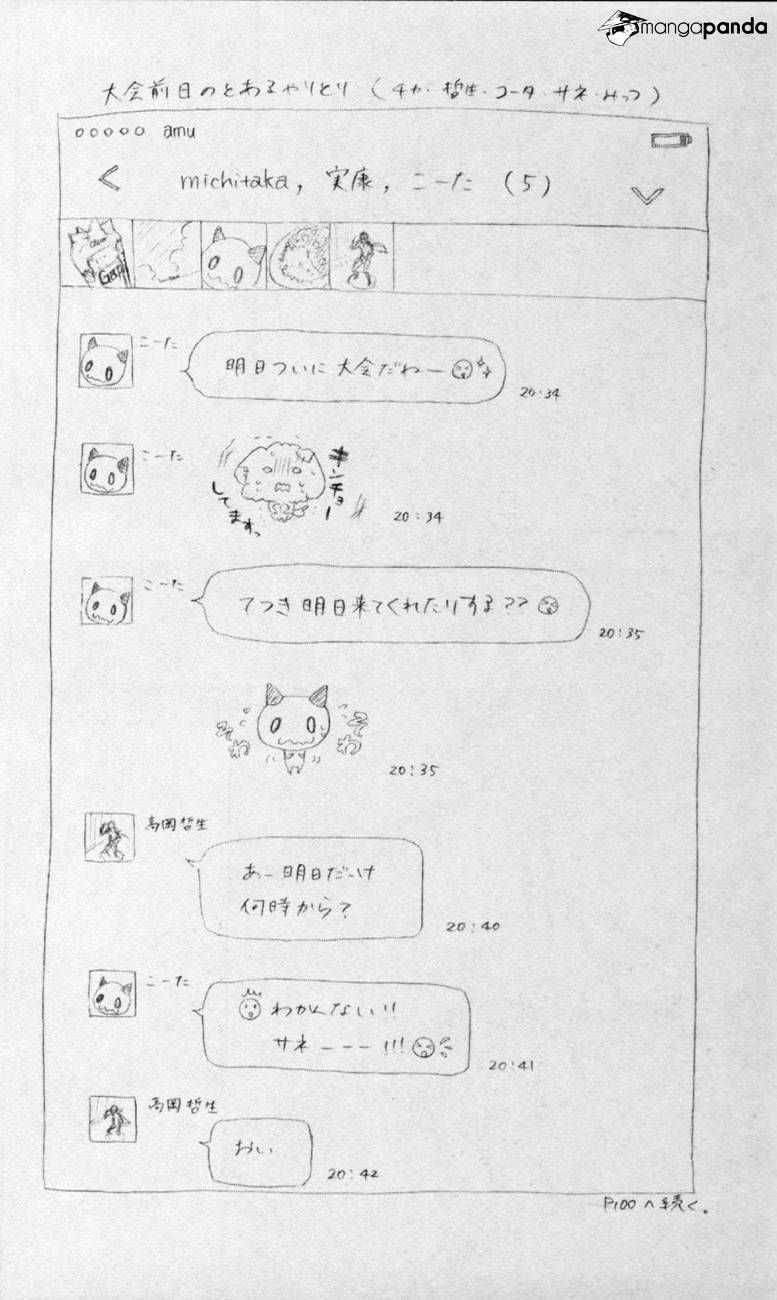 mangapanda
大会前日のとあるやりとり (チカ・哲生・コータ・サネ・みっつ)
amu
< michitaka, 実康, こーた (5)
Gapi
こーた
明日ついに大会だねー
20:34
こーた
キンチョー
してますっ
20:34
こーた
てつき明日来てくれたりする??
20:35
そわ
そわ
20:35
高岡哲生
あー明日だっけ
何時から?
20:40
こーた
わかんない!!
サネーーー!!!
20:41
高岡哲生
おい
20:42
P100へ続く。